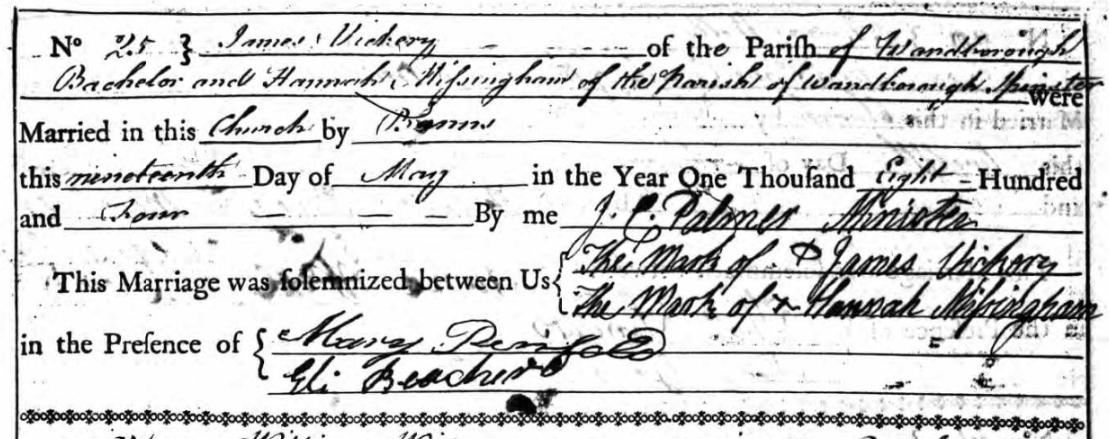 No 25 } James Vickery of the Pariſh of Wandborough
Bachelor and Hannah Miſsingham of the Parish of Wandborough Spinster
were
Married in this Church by Banns
this nineteenth Day of May in the Year One Thouſand Eight Hundred
and Four — — — By me J. C. Palmer Minister
This Marriage was ſolemnized between Us { The Mark of James Vickery
The Mark of x Hannah Miſsingham
in the Preſence of { Mary Penfold
Eli Beacher